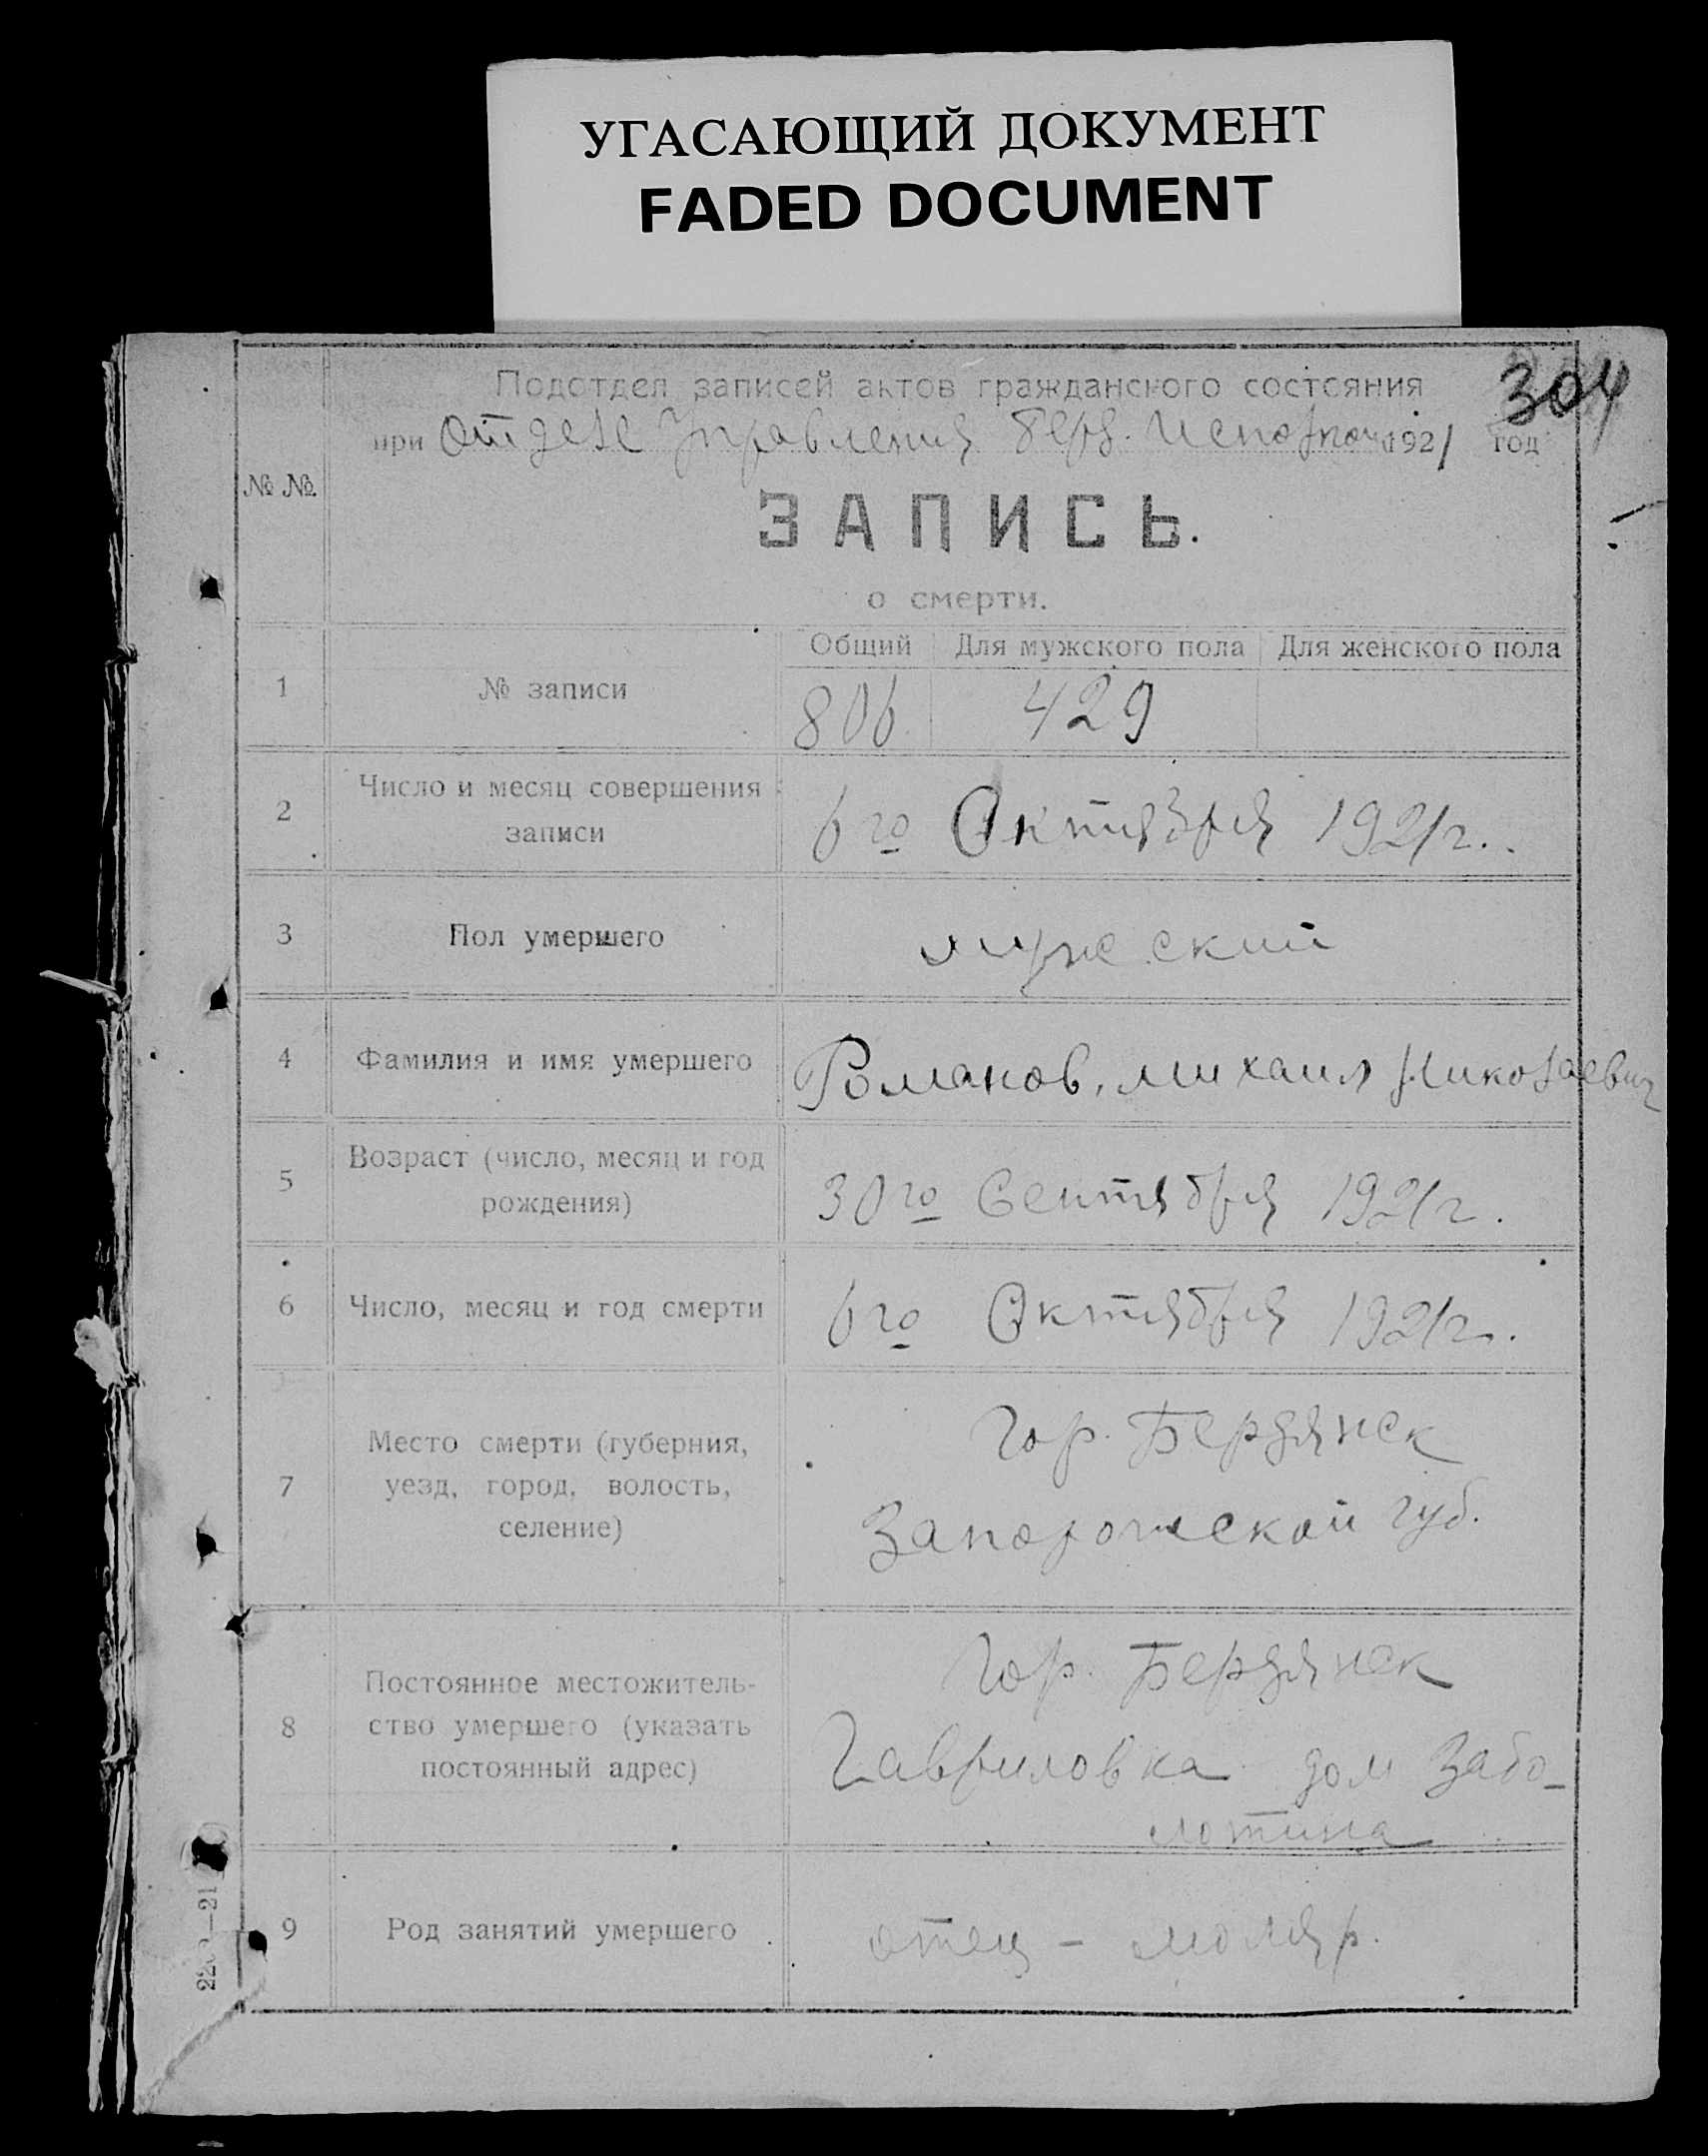 УГАСАЮЩИЙ ДОКУМЕНТ
FADED DOCUMENT
304
Подотдел записей актов гражданского состояния
при Отделе Управления Берд. 1921 год
№ №.
ЗАПИСЬ.
о смерти.
Общий Для мужского пола Для женского пола
1 № записи 806 429
2 Число и месяц совершения
записи 6го Октября 1921г.
3 Пол умершего мужеский
4 Фамилия и имя умершего Романов, Михаил Николаевич
5 Возраст (число, месяц и год
рождения) 30го Сентября 1921г.
6 Число, месяц и год смерти 6го Октября 1921г.
7 Место смерти (губерния,
уезд, город, волость,
селение)
Гор. Бердянск
Запорожской губ.
8 Постоянное местожитель-
ство умершего (указать
постоянный адрес)
Гор. Бердянск
Гавриловка дом Забо-
лотина
9 Род занятий умершего отец - моляр.